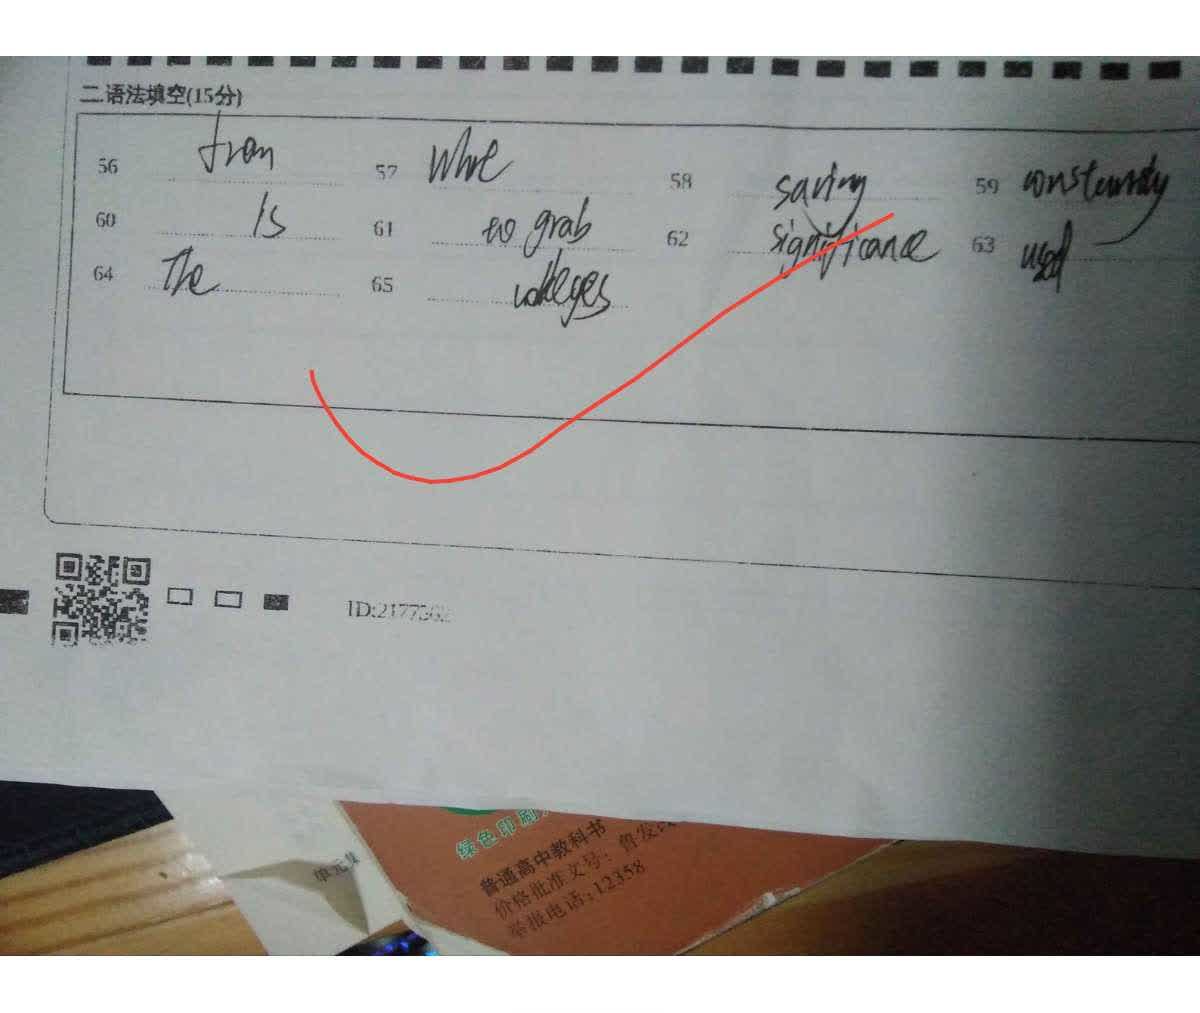 二.语法填空(15分)
56 from 57 58 saving 59 constantly
60 Is 61 to grab 62 significance 63 used
64 The 65
ID:2177562
绿色印刷
单元集
普通高中教科书
价格批准文号: 鲁发改
举报电话:12358